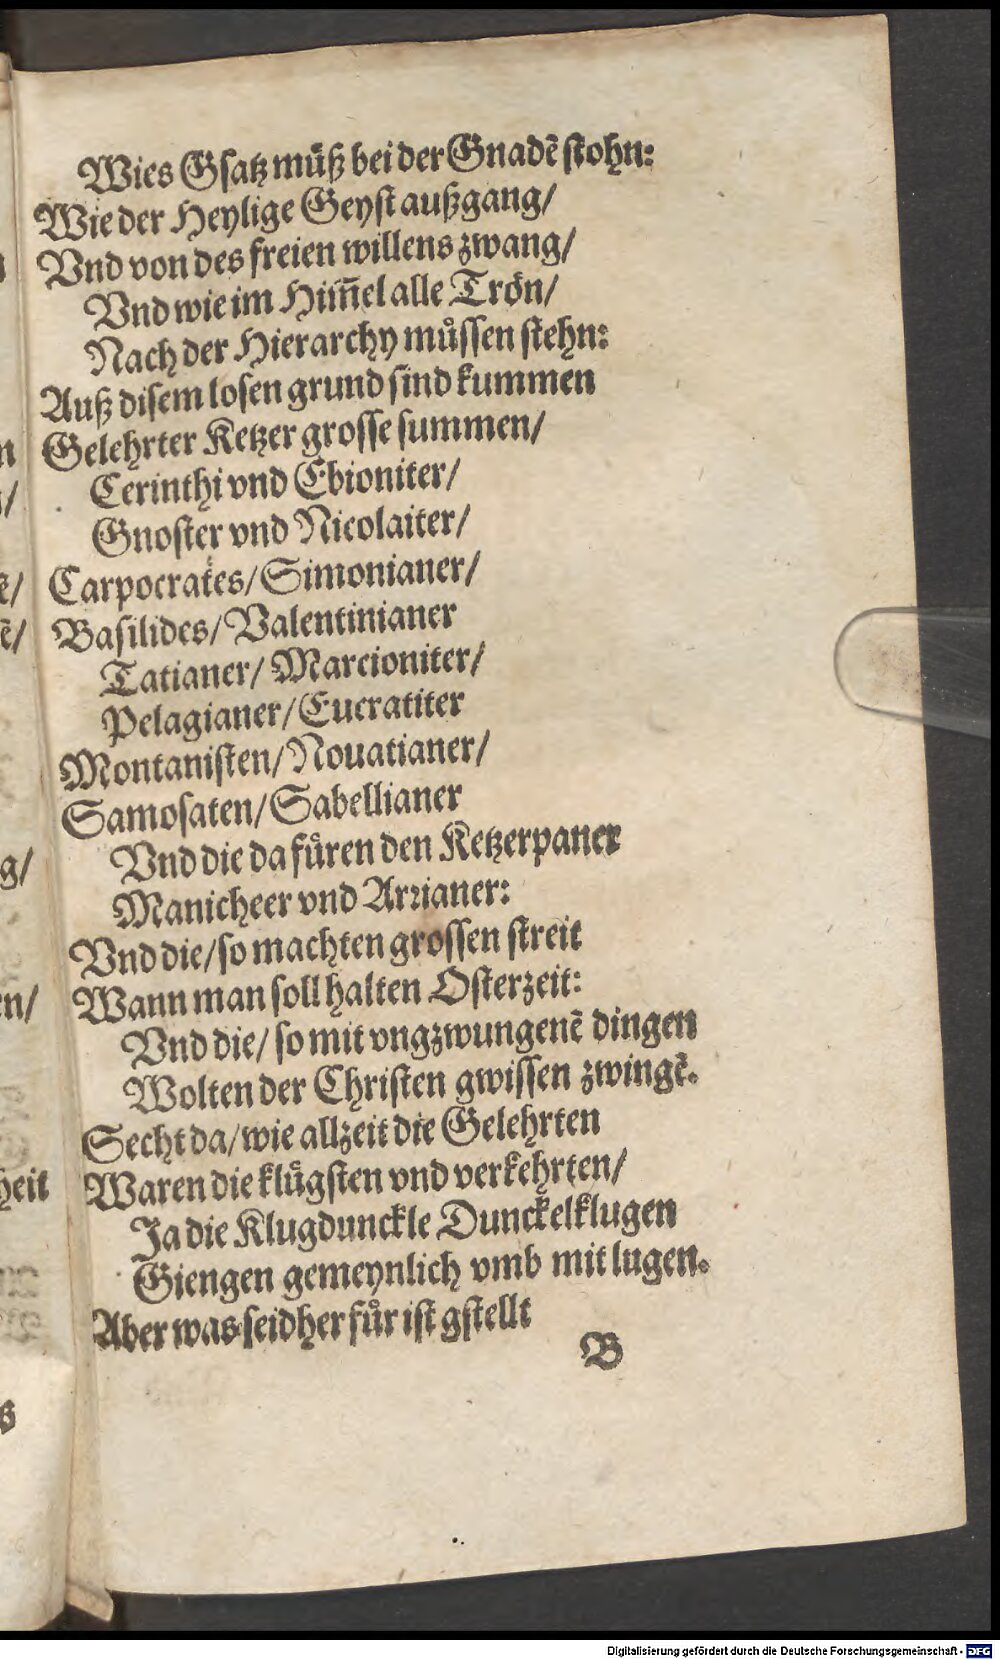 Wies Gsatz muͤß bei der Gnadē stohn:
Wie der Heylige Geyst außgang/
Vnd von des freien willens zwang/
Vnd wie im Him̄el alle Troͤn/
Nach der Hierarchy muͤssen stehn:
Auß disem losen grund sind kummen
Gelehrter Ketzer grosse summen/
Cerinthi vnd Ebioniter/
Gnoster vnd Nicolaiter/
Carpocrates/ Simonianer/
Basilides/ Valentinianer
Tatianer/ Marcioniter/
Pelagianer/ Eucratiter
Montanisten/ Nouatianer/
Samosaten/ Sabellianer
Vnd die da fuͤren den Ketzerpaner
Manicheer vnd Arrianer:
Vnd die/ so machten grossen streit
Wann man soll halten Osterzeit:
Vnd die/ so mit vngzwungenē dingen
Wolten der Christen gwissen zwingē.
Secht da/ wie allzeit die Gelehrten
Waren die kluͤgsten vnd verkehrten/
Ja die Klugdunckle Dunckelklugen
Giengen gemeynlich vmb mit lugen.
Aber was seidher fuͤr ist gstellt
B
Digitalisierung gefördert durch die Deutsche Forschungsgemeinschaft - DFG